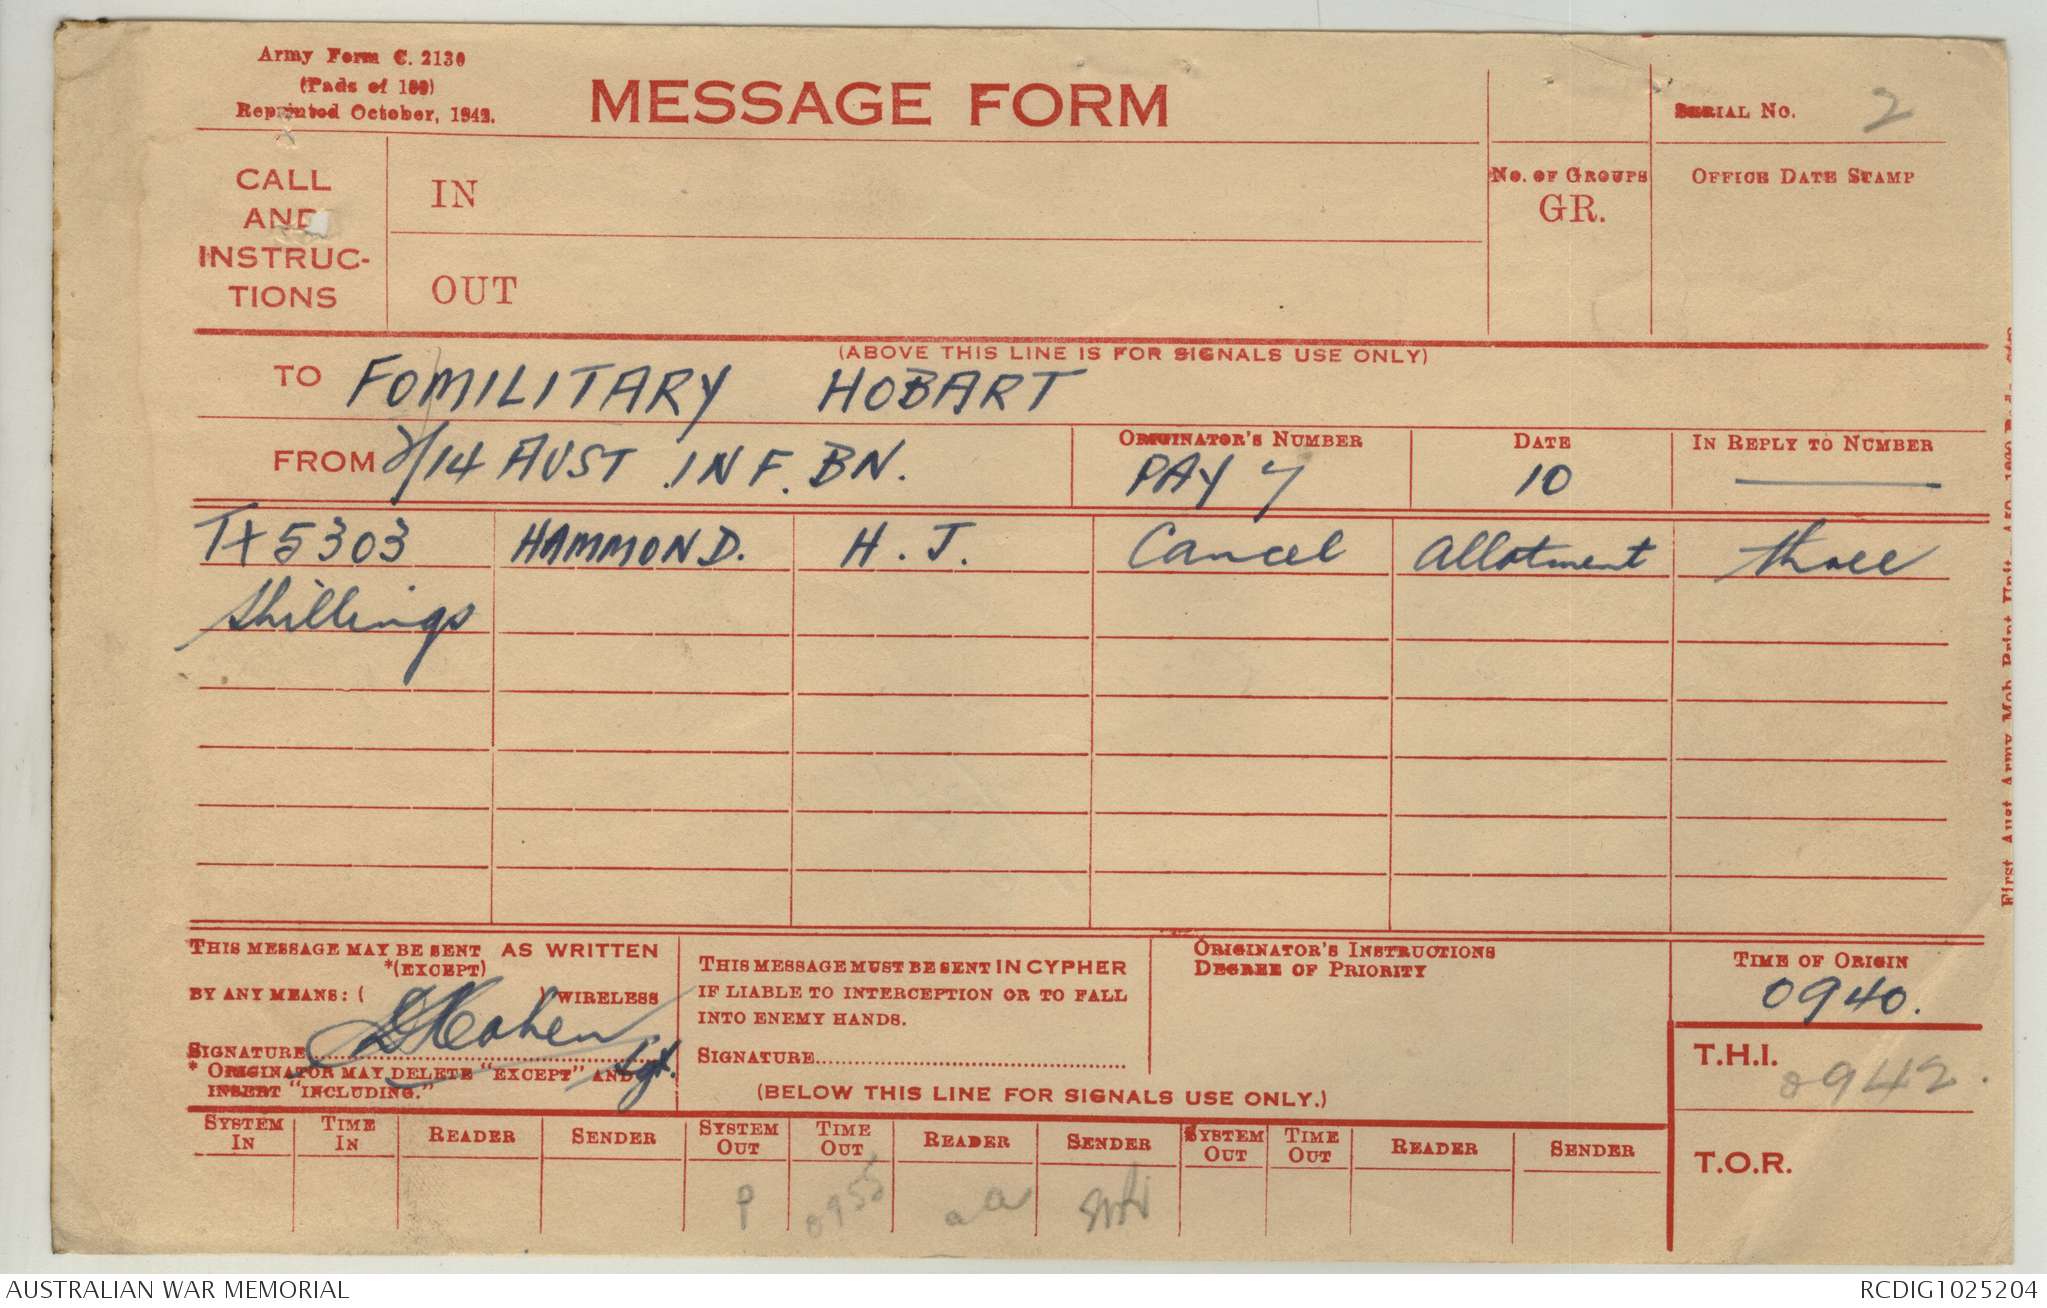 Army Form C. 2130
(Pads of 100)
Reprinted October, 1942.
MESSAGE FORM
SERIAL NO. 2
CALL AND INSTRUC-TIONS
IN
OUT
NO. OF GROUPS
GR.
OFFICE DATE STAMP
(ABOVE THIS LINE IS FOR SIGNALS USE ONLY)
TO FOMILITARY HOBART
FROM 2/14 AUST. INF. BN.
ORIGINATOR'S NUMBER
PAY 7
DATE
10
IN REPLY TO NUMBER
TX5303 HAMMOND. H. J. Cancel allotment three
shillings
THIS MESSAGE MAY BE SENT AS WRITTEN
*(EXCEPT)
BY ANY MEANS: ( ) WIRELESS
SIGNATURE Cohen Sgt.
* ORIGINATOR MAY DELETE "EXCEPT" AND
INSERT "INCLUDING."
THIS MESSAGE MUST BE SENT IN CYPHER
IF LIABLE TO INTERCEPTION OR TO FALL
INTO ENEMY HANDS.
SIGNATURE
(BELOW THIS LINE FOR SIGNALS USE ONLY.)
ORIGINATOR'S INSTRUCTIONS
DEGREE OF PRIORITY
TIME OF ORIGIN
0940.
T.H.I. 0942.
T.O.R.
SYSTEM IN TIME IN READER SENDER SYSTEM OUT TIME OUT READER SENDER SYSTEM OUT TIME OUT READER SENDER
P 0955
AUSTRALIAN WAR MEMORIAL
RCDIG1025204